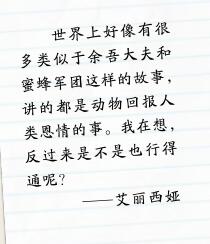 世界上好像有很
多类似于余吾大夫和
蜜蜂军团这样的故事，
讲的都是动物回报人
类恩情的事。我在想，
反过来是不是也行得
通呢？
——艾丽西娅